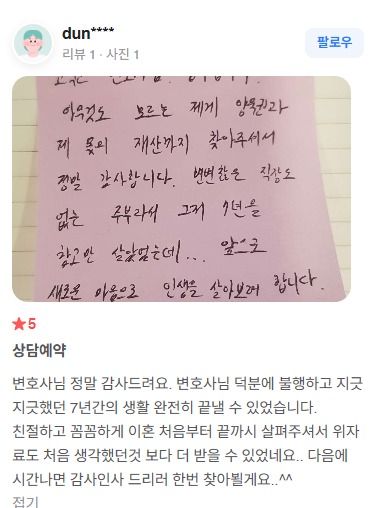 dun****
리뷰 1 · 사진 1
팔로우
아무것도 모르는 제게 양육권과
제 몫의 재산까지 찾아주셔서
정말 감사합니다. 변변찮은 직장도
없는 주부라서 그저 7년을
참고만 살았었는데... 앞으로
새로운 마음으로 인생을 살아보려 합니다.
★5
상담예약
변호사님 정말 감사드려요. 변호사님 덕분에 불행하고 지긋
지긋했던 7년간의 생활 완전히 끝낼 수 있었습니다.
친절하고 꼼꼼하게 이혼 처음부터 끝까지 살펴주셔서 위자
료도 처음 생각했던것 보다 더 받을 수 있었네요.. 다음에
시간나면 감사인사 드리러 한번 찾아뵐게요..^^
접기